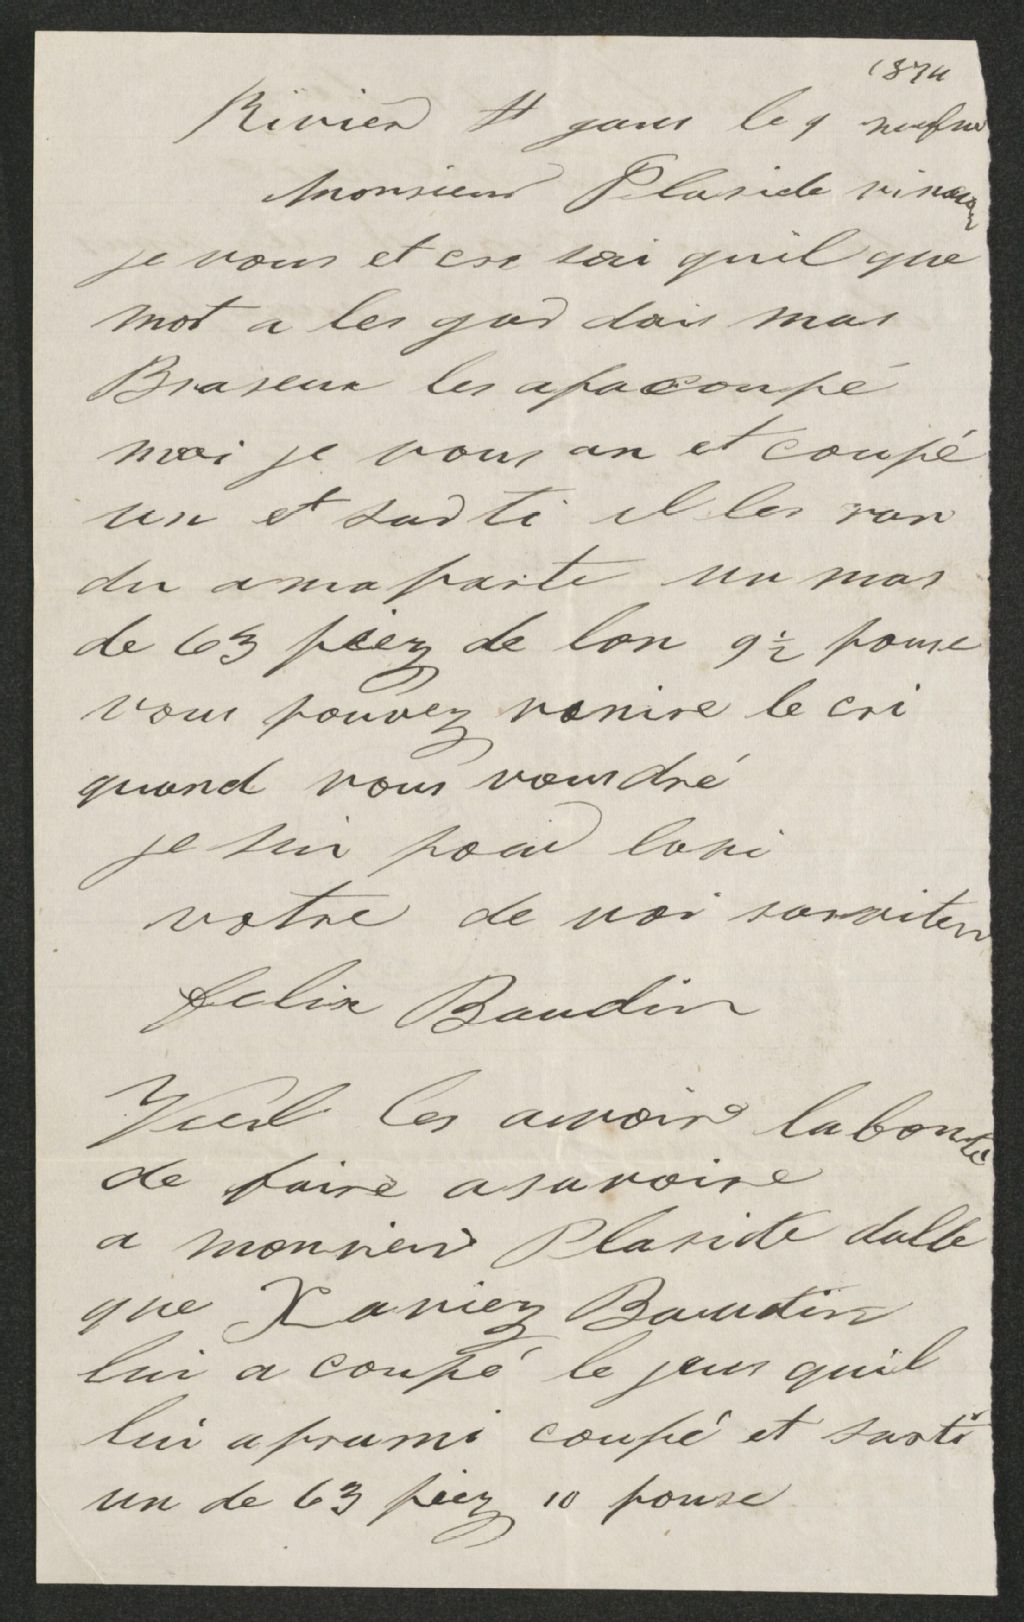 1874
Rivier St jaus le 9
Monsieur Plaside
je vous et cre sai quil que
mot a les gar dais mas
Braseux les a pa coupé
moi je vous an et coupé
un et sar ti il les ran
du a ma parte un mas
de 63 piez de lon 9½ pouse
vous pouvez venire le cri
quand vous vousdré
je sui pour lavi
votre de voi sarviteur
felix Baudin
les avoire la bonté
de faire a savoire
a monsieur Plaside dalle
que Xaviez Baudin
lui a coupé le jour quil
lui a prami coupé et sarti
un de 63 piez 10 pouse